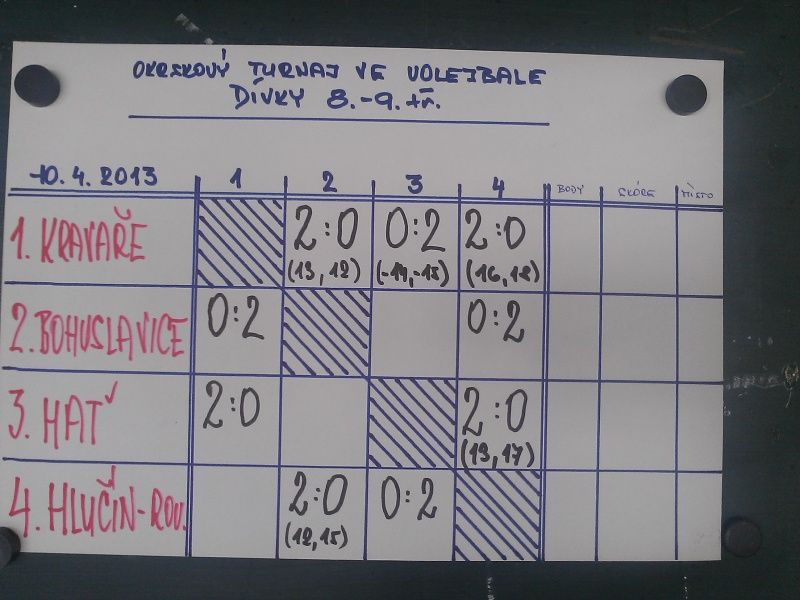 OKRSKOVÝ TURNAJ VE VOLEJBALE
DÍVKY 8.-9. tř.
10.4.2013 1 2 3 4 BODY SKÓRE MÍSTO
1. KRAVAŘE 2:0 0:2 2:0
(13,12) (-14,-15) (16,18)
2. BOHUSLAVICE 0:2 0:2
3. HAŤ 2:0 2:0
(13,17)
4. HLUČÍN-ROV. 2:0 0:2
(12,15)